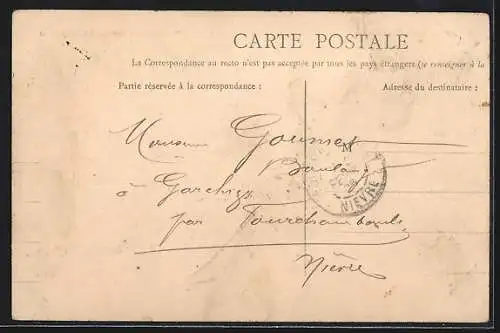 CARTE POSTALE
La Correspondance au recto n'est pas acceptée par tous les pays étrangers (se renseigner à la
Partie réservée à la correspondance :
Adresse du destinataire :
M
Monsieur
à Garchizy
par Fourchambault
Nièvre
NIEVRE